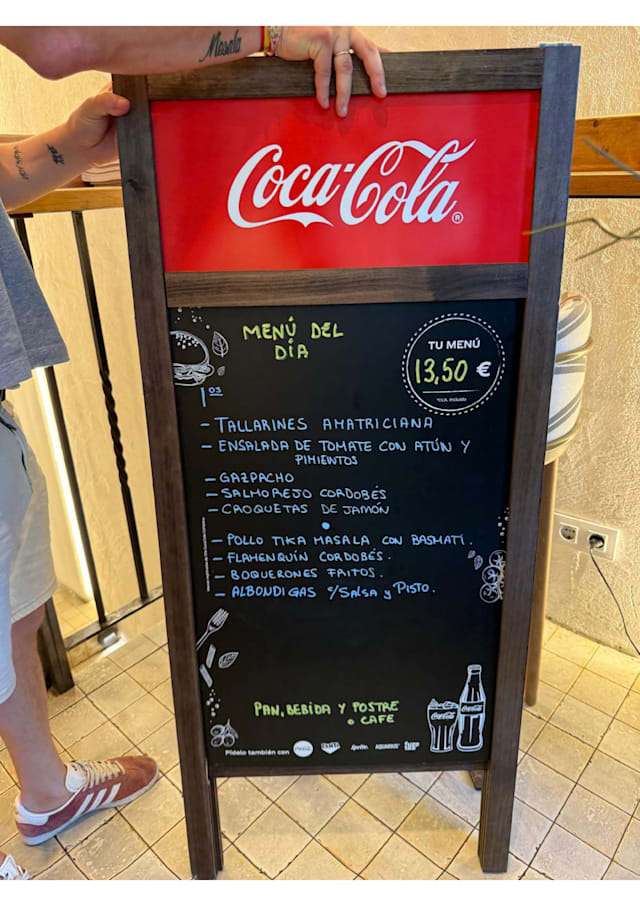 Masala
Coca-Cola®
MENÚ DEL
DÍA
TU MENÚ
13,50 €
IVA incluido
1os
- TALLARINES AMATRICIANA
- ENSALADA DE TOMATE CON ATÚN Y
PIMIENTOS
- GAZPACHO
- SALMOREJO CORDOBÉS
- CROQUETAS DE JAMÓN
- POLLO TIKA MASALA CON BASMATI.
- FLAMENQUÍN CORDOBÉS.
- BOQUERONES FRITOS.
- ALBONDIGAS c/SALSA y PISTO.
PAN, BEBIDA Y POSTRE
o CAFE
Coca-Cola Coca-Cola
Pídelo también con Fanta Sprite AQUARIUS